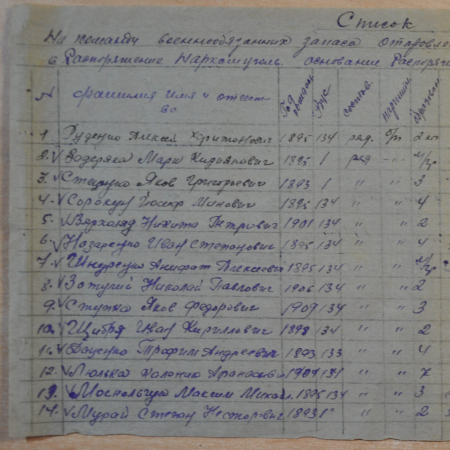 Список
На команду военнообязанных запаса отправле
в Распоряжение Наркомуголь основание Распоряж
№ фамилия имя и отчество Год рожден ВУС состав.
1. Руденко Алексей Харитонович 1895 134 ряд. б/п 2 кл
2. √ Марк 1895 1 ряд -"- м/гр
3. √ Стеценко Яков Григорьевич 1893 1 " " 3
4. √ Сорокун Иосиф Минович 1895 134 " " 4
5. √ Никита Петрович 1901 134 " " 2
6. √ Назаренко Иван Степанович 1895 134 " " 4
7. √ Шнуренко Анифат Алексеевич 1895 134 " " м/гр
8. √ Затулий Николай Павлович 1906 134 " " 2
9. √ Ступка Яков Федорович 1909 134 " " 3
10. √ Щитбя Иван Кириллович 1898 134 " " 2
11. √ Трофим Андреевич 1893 133 " " 4
12. √ Люлька 1904 131 " " 7
13. √ Москальчук Максим Михайл. 1895 134 " " 3
14. √ Мурай Степан Несторович 1893 1 " " " 2